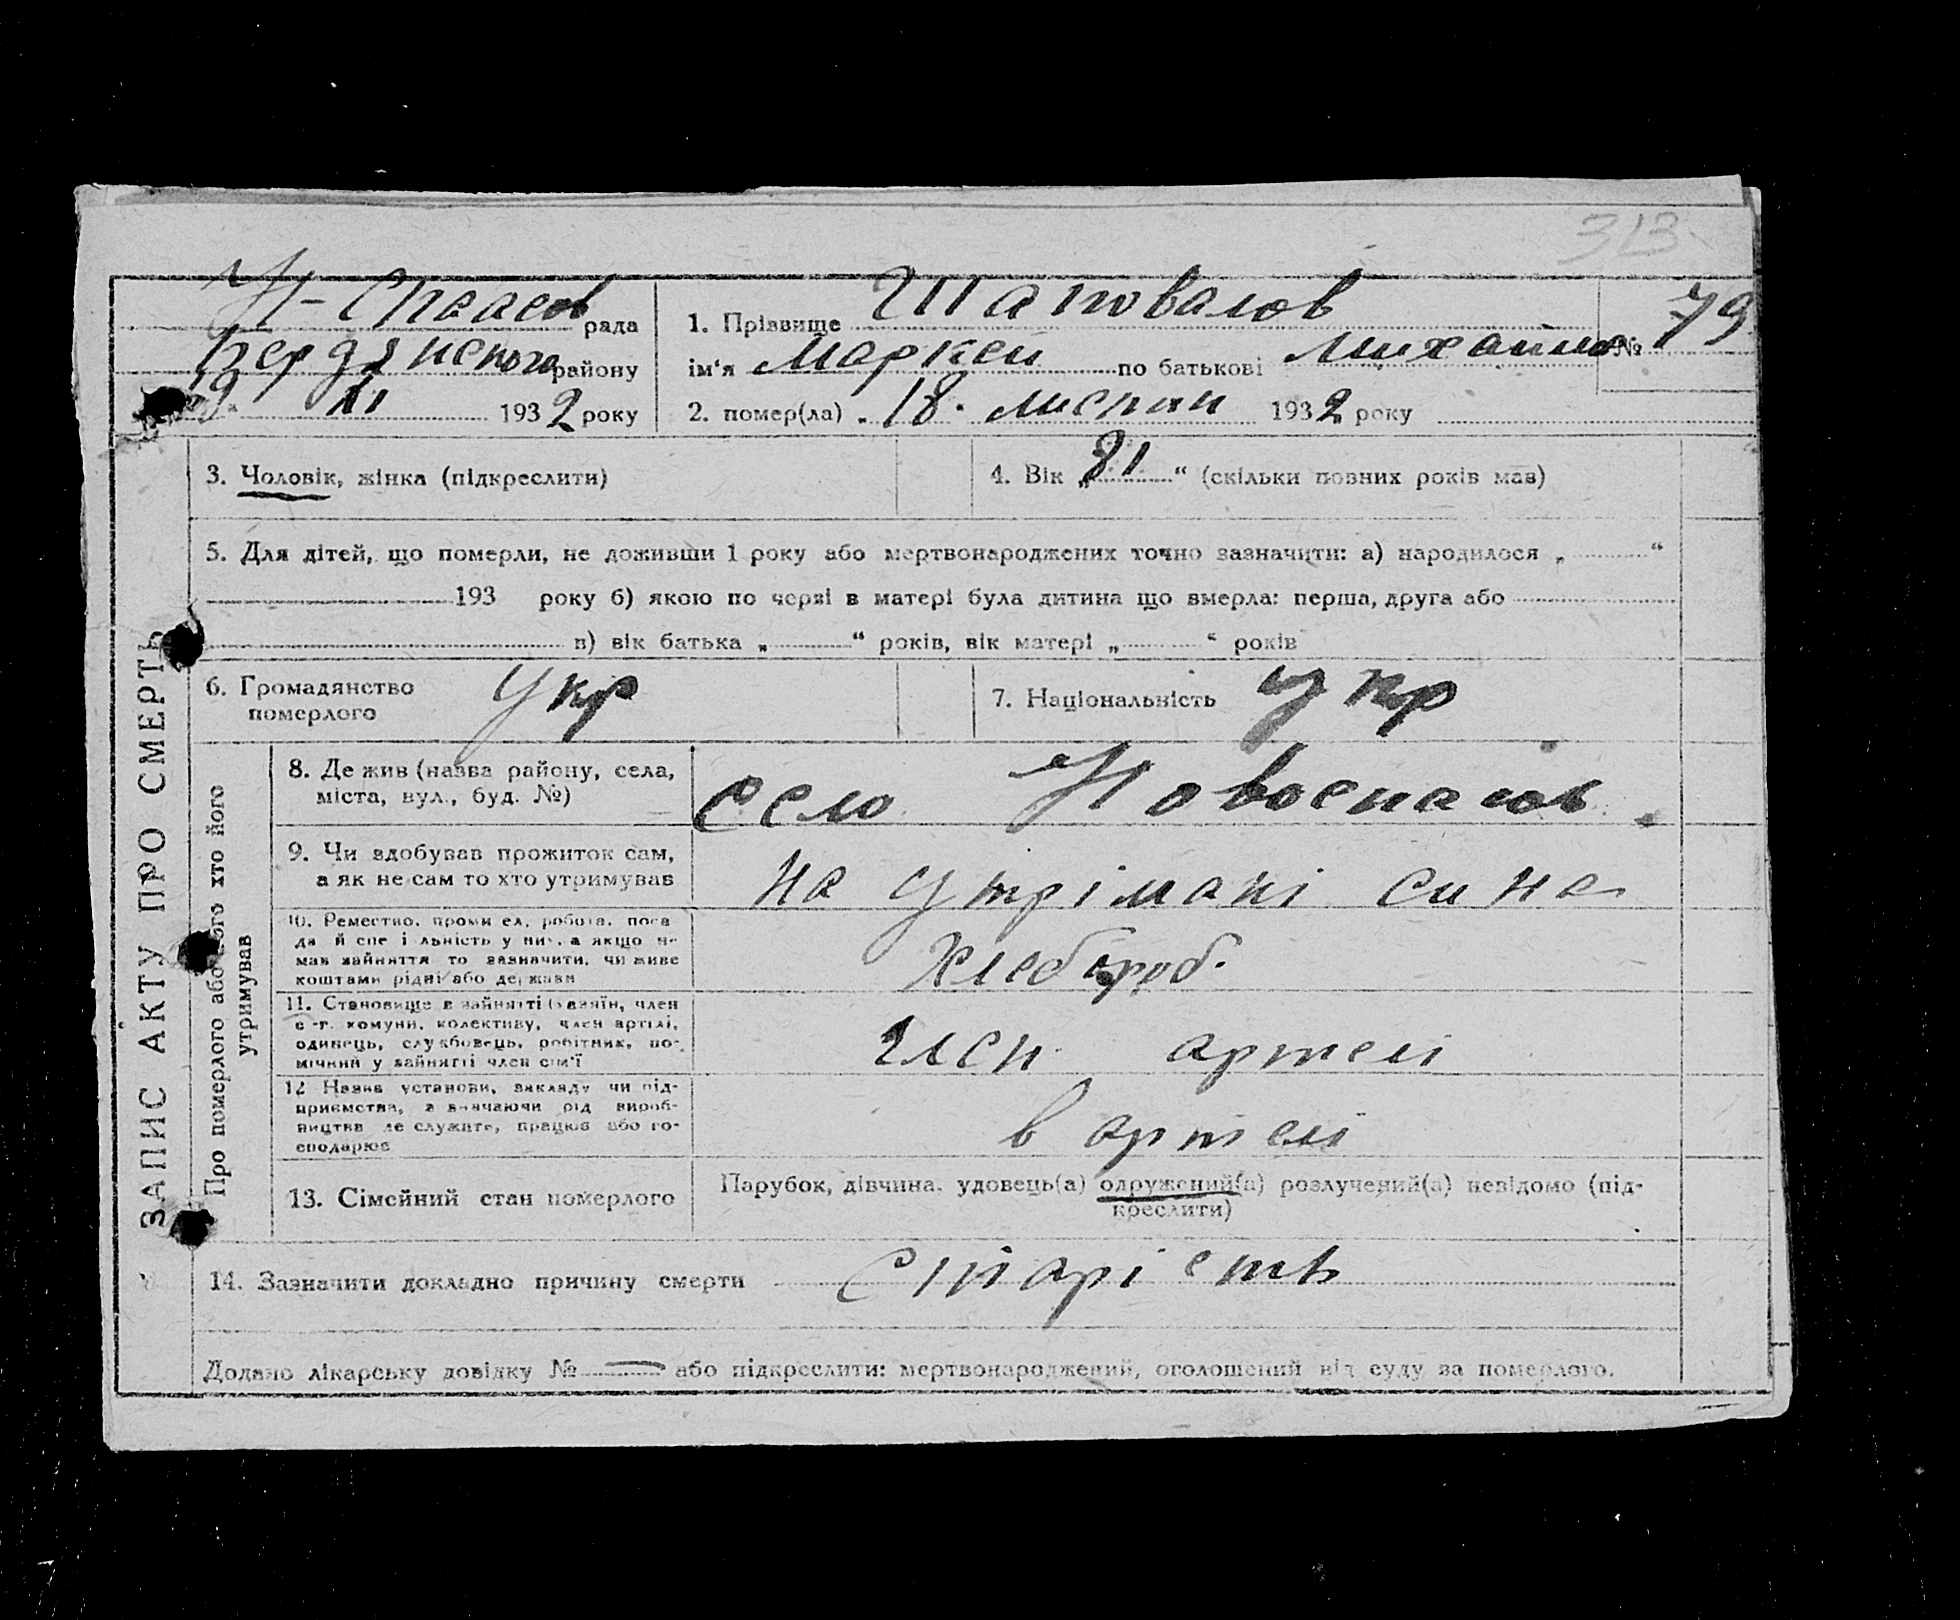 313
Н-Спасов рада
Бердянського району
19. XI 1932 року
1. Прізвище Шаповалов
№ 79
ім'я Маркей по батькові Михайло
2. помер(ла) „ 18. листоп 1932 року
3. Чоловік, жінка (підкреслити)
4. Вік „81“ (скільки повних років мав)
5. Для дітей, що померли, не доживши 1 року або мертвонароджених точно зазначити: а) народилося „ “
193 року б) якою по черзі в матері була дитина що вмерла: перша, друга або
в) вік батька „ “ років, вік матері „ “ років
6. Громадянство
померлого
укр
7. Національність укр
ЗАПИС АКТУ ПРО СМЕРТЬ
Про померлого або того хто його
утримував
8. Де жив (назва району, села,
міста, вул., буд. №)
село Новоспасов.
9. Чи здобував прожиток сам,
а як не сам то хто утримував
на утрімані сина
10. Ремество, промисел, робота, поса
да й спеціальність у ній, а якщо не
мав зайняття то зазначити, чи живе
коштами рідні або держави
Хлебороб.
11. Становище в зайнятті (хазяїн, член
с.-г. комуни, колективу, член артілі,
одинець, службовець, робітник, по-
мічний у зайнятті член сім'ї
Член артелі
12 Назва установи, закладу чи під-
приємства, зазначаючи рід вироб-
ництва де служить, працює або го-
сподарює
в артелі
13. Сімейний стан померлого
Парубок, дівчина, удовець(а) одружений(а) розлучений(а) невідомо (під-
креслити)
14. Зазначити докладно причину смерти старість
Додано лікарську довідку № — або підкреслити: мертвонароджений, оголошений від суду за померлого.